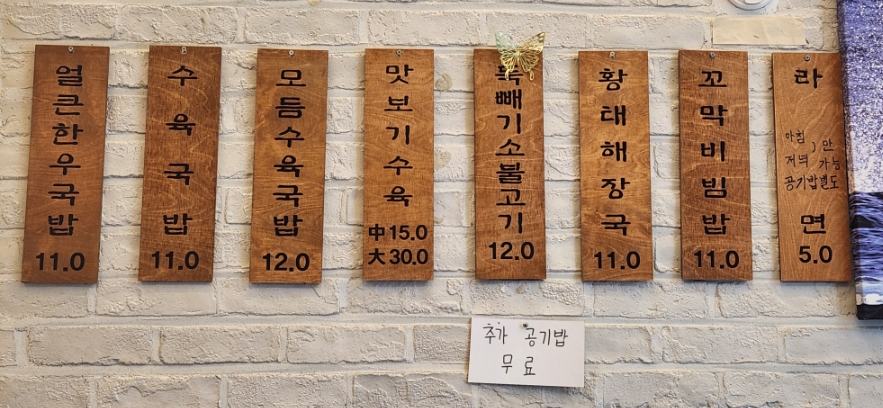 얼큰한우국밥
11.0
수육국밥
11.0
모듬수육국밥
12.0
맛보기수육
中 15.0
大 30.0
뚝빼기소불고기
12.0
황태해장국
11.0
꼬막비빔밥
11.0
라면
아침
저녁 만 가능
공기밥별도
5.0
추가 공기밥
무료